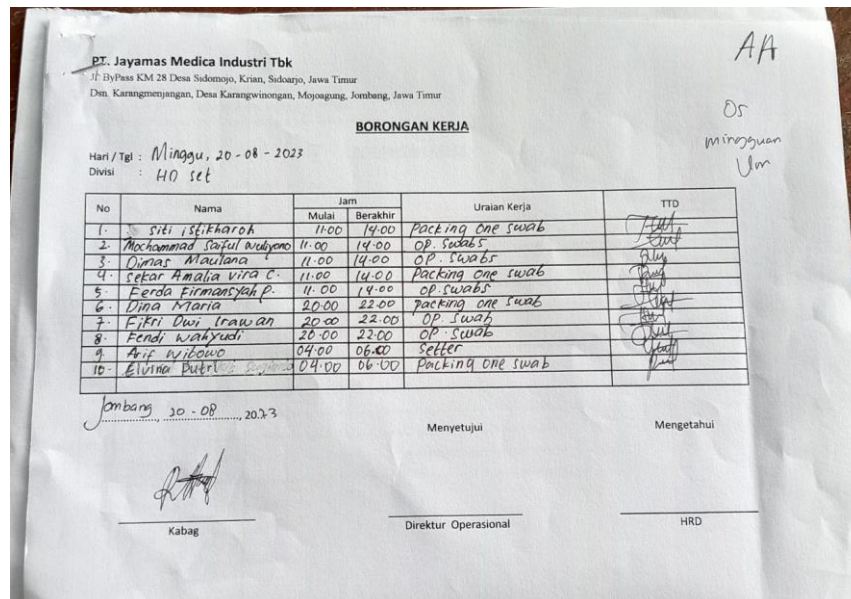 AA
PT. Jayamas Medica Industri Tbk
Jl. ByPass KM 28 Desa Sidomojo, Krian, Sidoarjo, Jawa Timur
Dsn. Karangmenjangan, Desa Karangwinongan, Mojoagung, Jombang, Jawa Timur
Os
mingguan
BORONGAN KERJA
Hari / Tgl : Minggu, 20 - 08 - 2023
Divisi : HD set
No Nama Jam Uraian Kerja TTD
Mulai Berakhir
1. Siti istikharoh 11.00 14.00 Packing one swab
2. Mochammad Saiful wuliyono 11.00 14.00 OP. Swabs
3. Dimas Maulana 11.00 14.00 OP. Swabs
4. Sekar Amalia vira C. 11.00 14.00 Packing one swab
5. Ferda Firmansyah P. 11.00 14.00 OP. swabs
6. Dina Maria 20.00 22.00 packing one swab
7. Fikri Dwi Irawan 20.00 22.00 OP. Swab
8. Fendi wahyudi 20.00 22.00 OP. Swab
9. Arif wibowo 04.00 06.00 Setter
10. Elvina Putri 04.00 06.00 Packing one swab
Jombang, 20 - 08, 2023
Menyetujui Mengetahui
Kabag Direktur Operasional HRD